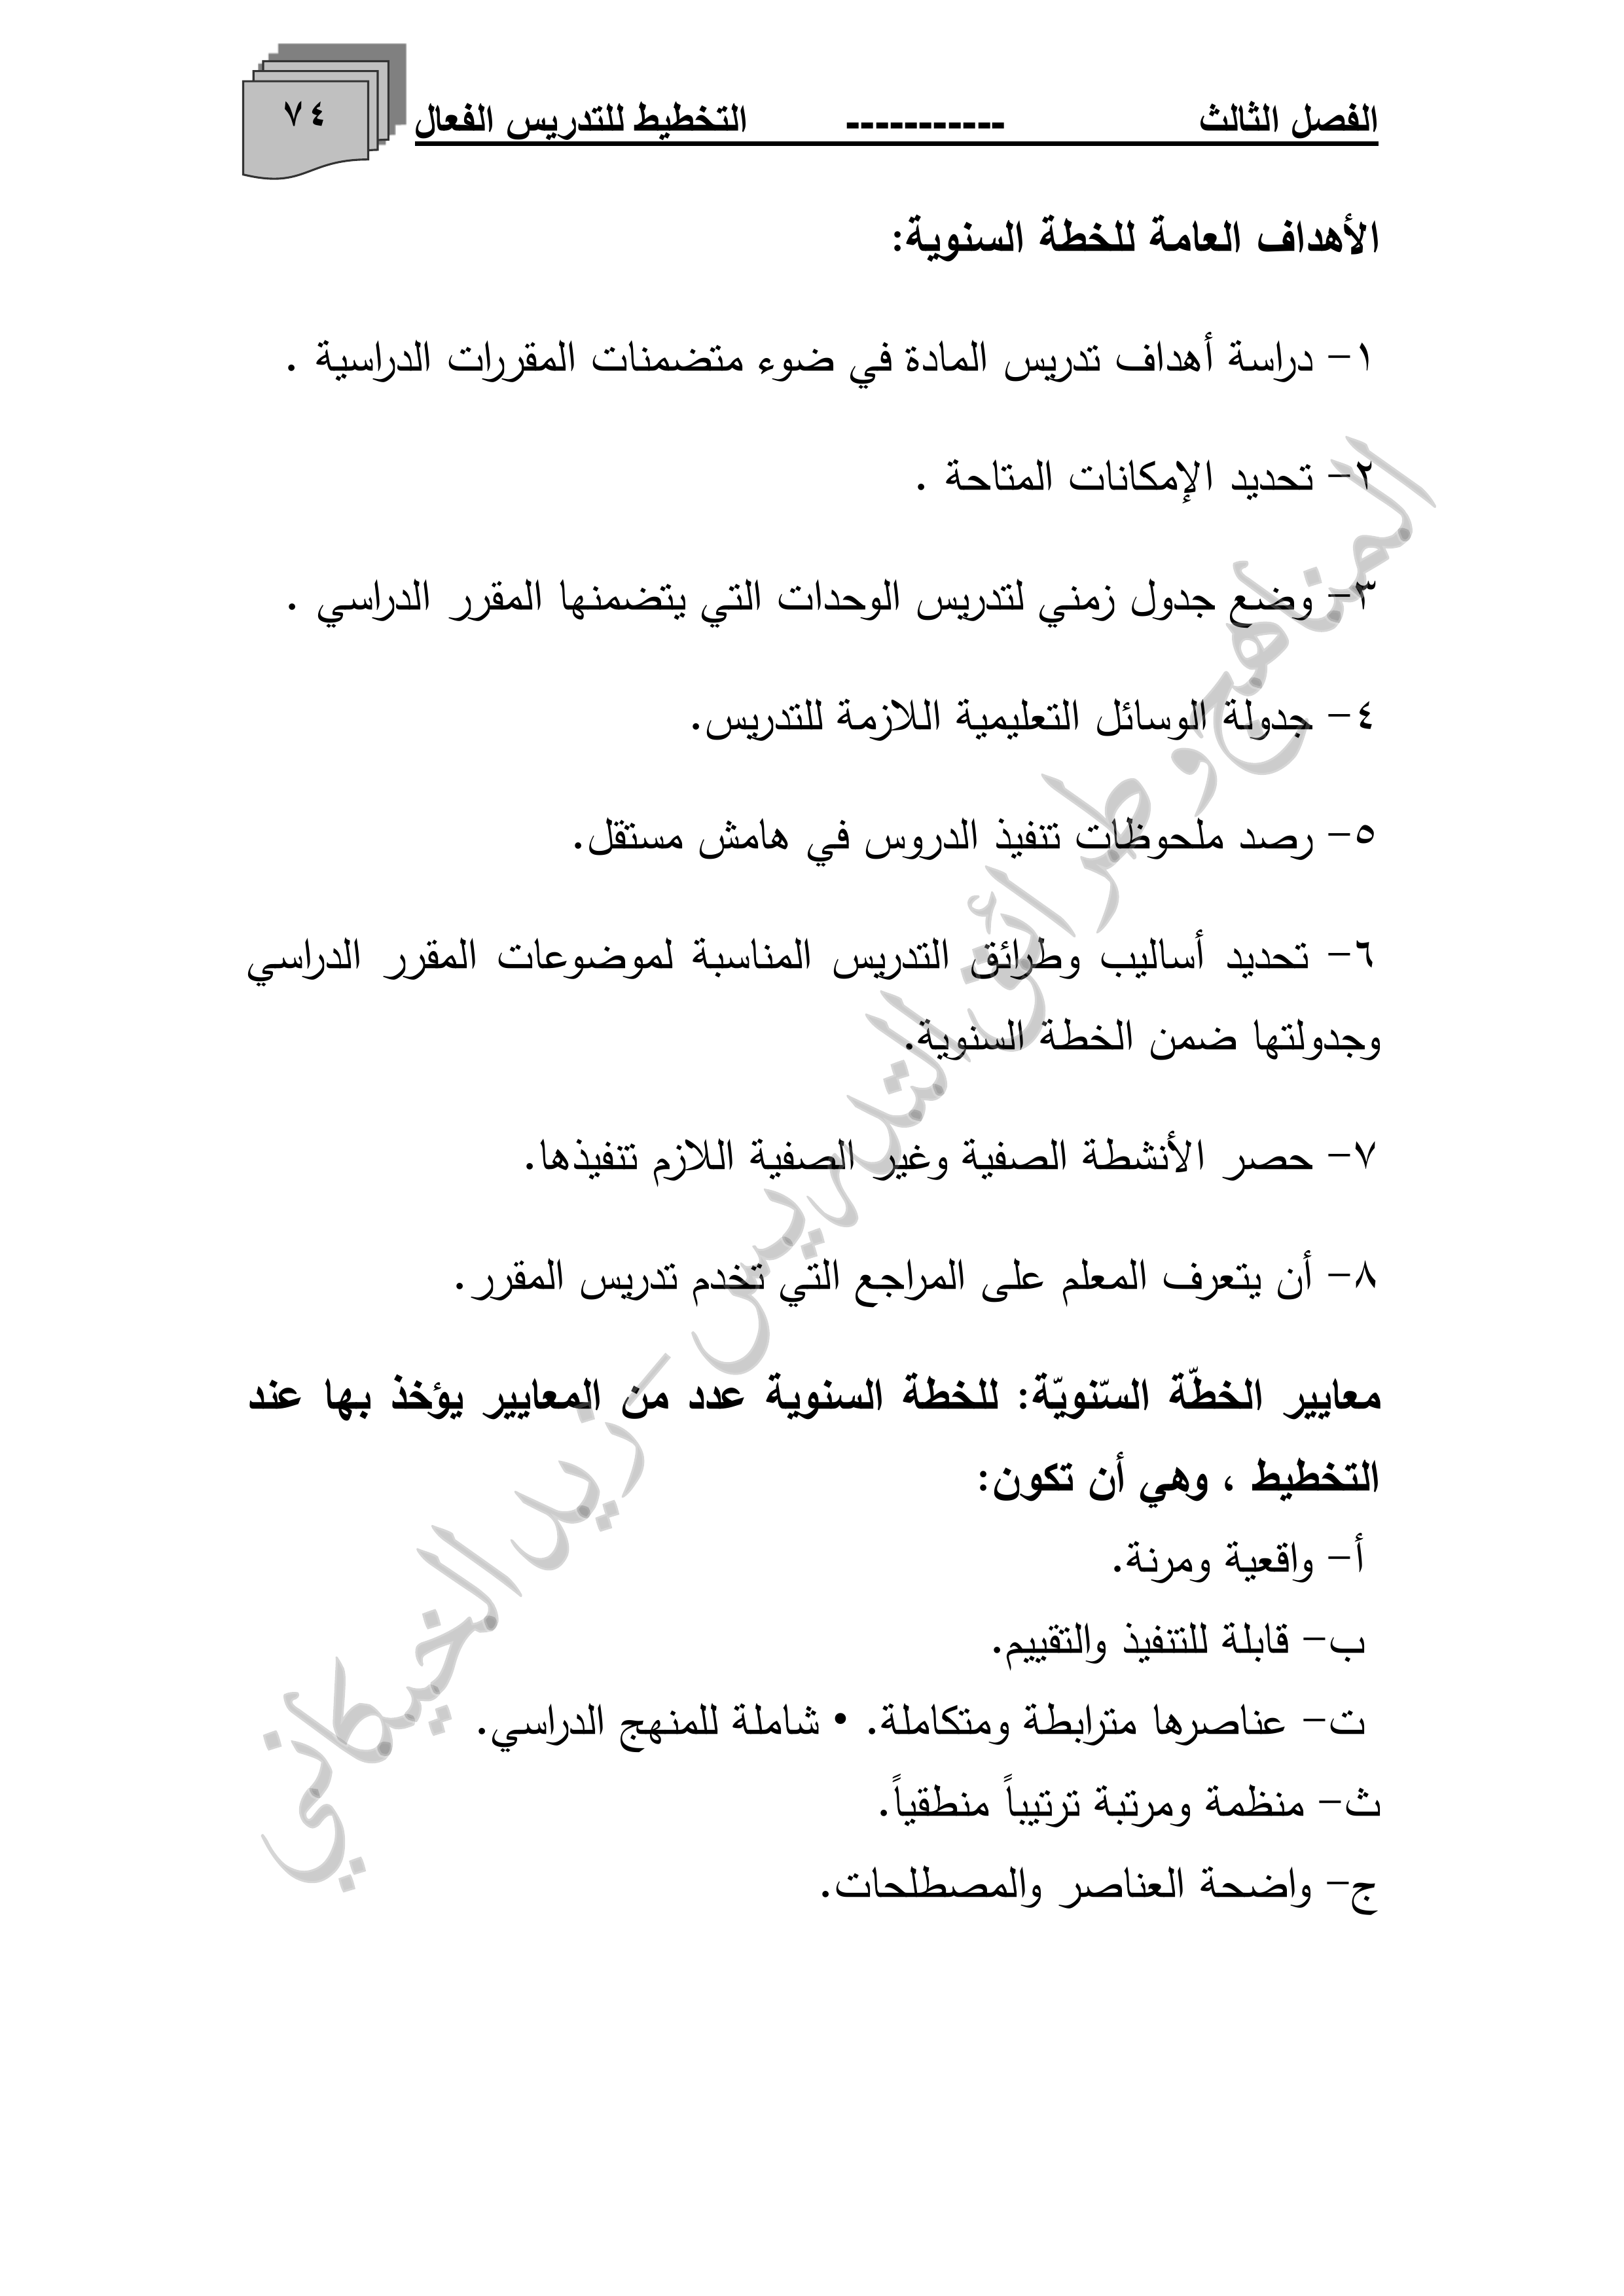 الفصل الثالث ----------- التخطيط للتدريس الفعال ٧٤
الأهداف العامة للخطة السنوية:
١- دراسة أهداف تدريس المادة في ضوء متضمنات المقررات الدراسية .
٢- تحديد الإمكانات المتاحة .
٣- وضع جدول زمني لتدريس الوحدات التي يتضمنها المقرر الدراسي .
٤- جدولة الوسائل التعليمية اللازمة للتدريس.
٥- رصد ملحوظات تنفيذ الدروس في هامش مستقل.
٦- تحديد أساليب وطرائق التدريس المناسبة لموضوعات المقرر الدراسي
وجدولتها ضمن الخطة السنوية.
٧- حصر الأنشطة الصفية وغير الصفية اللازم تنفيذها.
٨- أن يتعرف المعلم على المراجع التي تخدم تدريس المقرر.
معايير الخطّة السّنويّة: للخطة السنوية عدد من المعايير يؤخذ بها عند
التخطيط ، وهي أن تكون:
أ- واقعية ومرنة.
ب- قابلة للتنفيذ والتقييم.
ت- عناصرها مترابطة ومتكاملة. • شاملة للمنهج الدراسي.
ث- منظمة ومرتبة ترتيباً منطقياً.
ج- واضحة العناصر والمصطلحات.
المناهج وطرائق التدريس - زيد الخيكاني